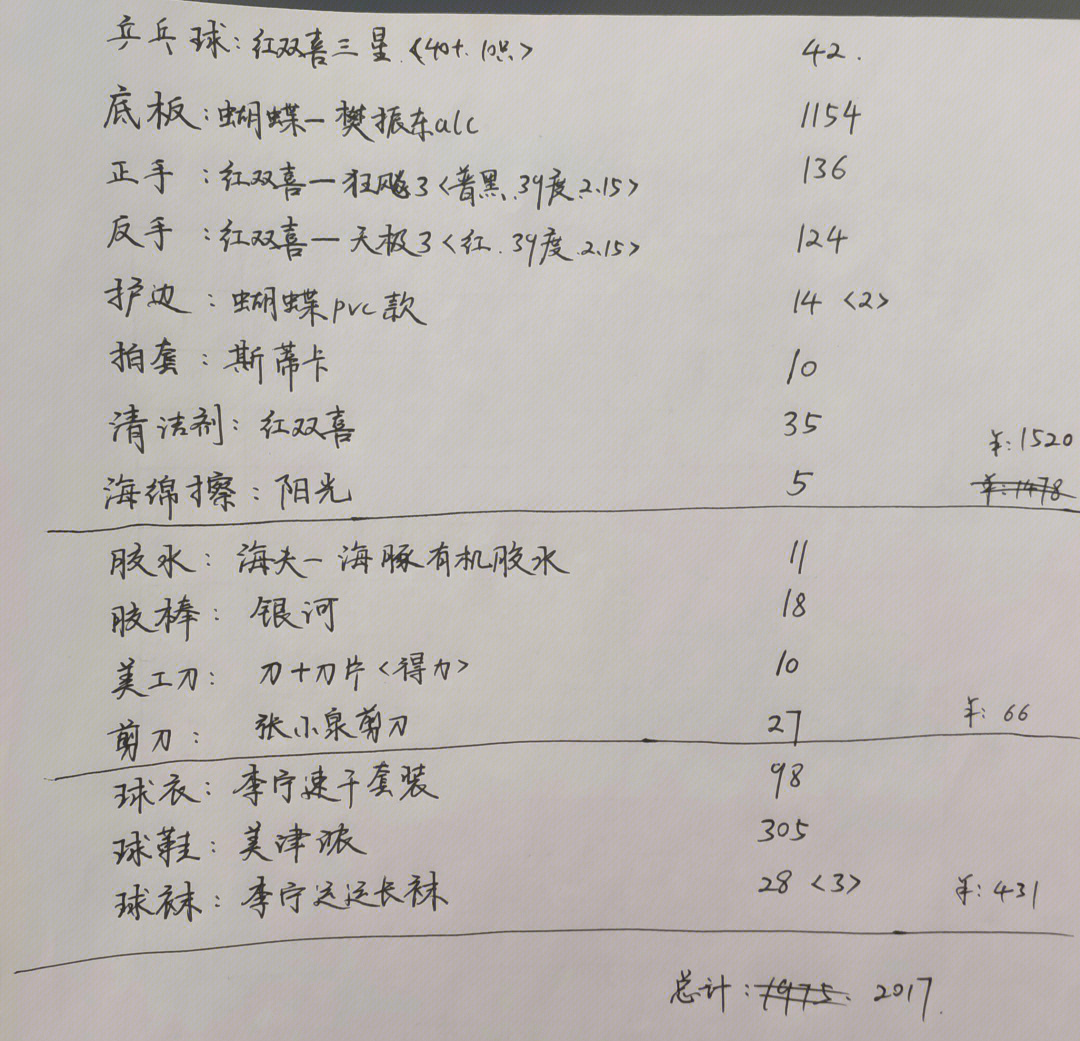 乒乓球:红双喜三星<40+.10只> 42.
底板:蝴蝶一樊振东alc 1154
正手:红双喜一狂飚3<普黑.39度.2.15> 136
反手:红双喜一天极3<红.39度.2.15> 124
护边:蝴蝶pvc款 14<2>
拍套:斯蒂卡 10
清洁剂:红双喜 35
羊:1520
海绵擦:阳光 5 羊:1478
胶水:海夫一海豚有机胶水 11
胶棒:银河 18
美工刀:刀+刀片<得力> 10
剪刀:张小泉剪刀 27 羊:66
球衣:李宁速干套装 98
球鞋:美津浓 305
球袜:李宁运运长袜 28<3> 羊:431
总计:1975. 2017.